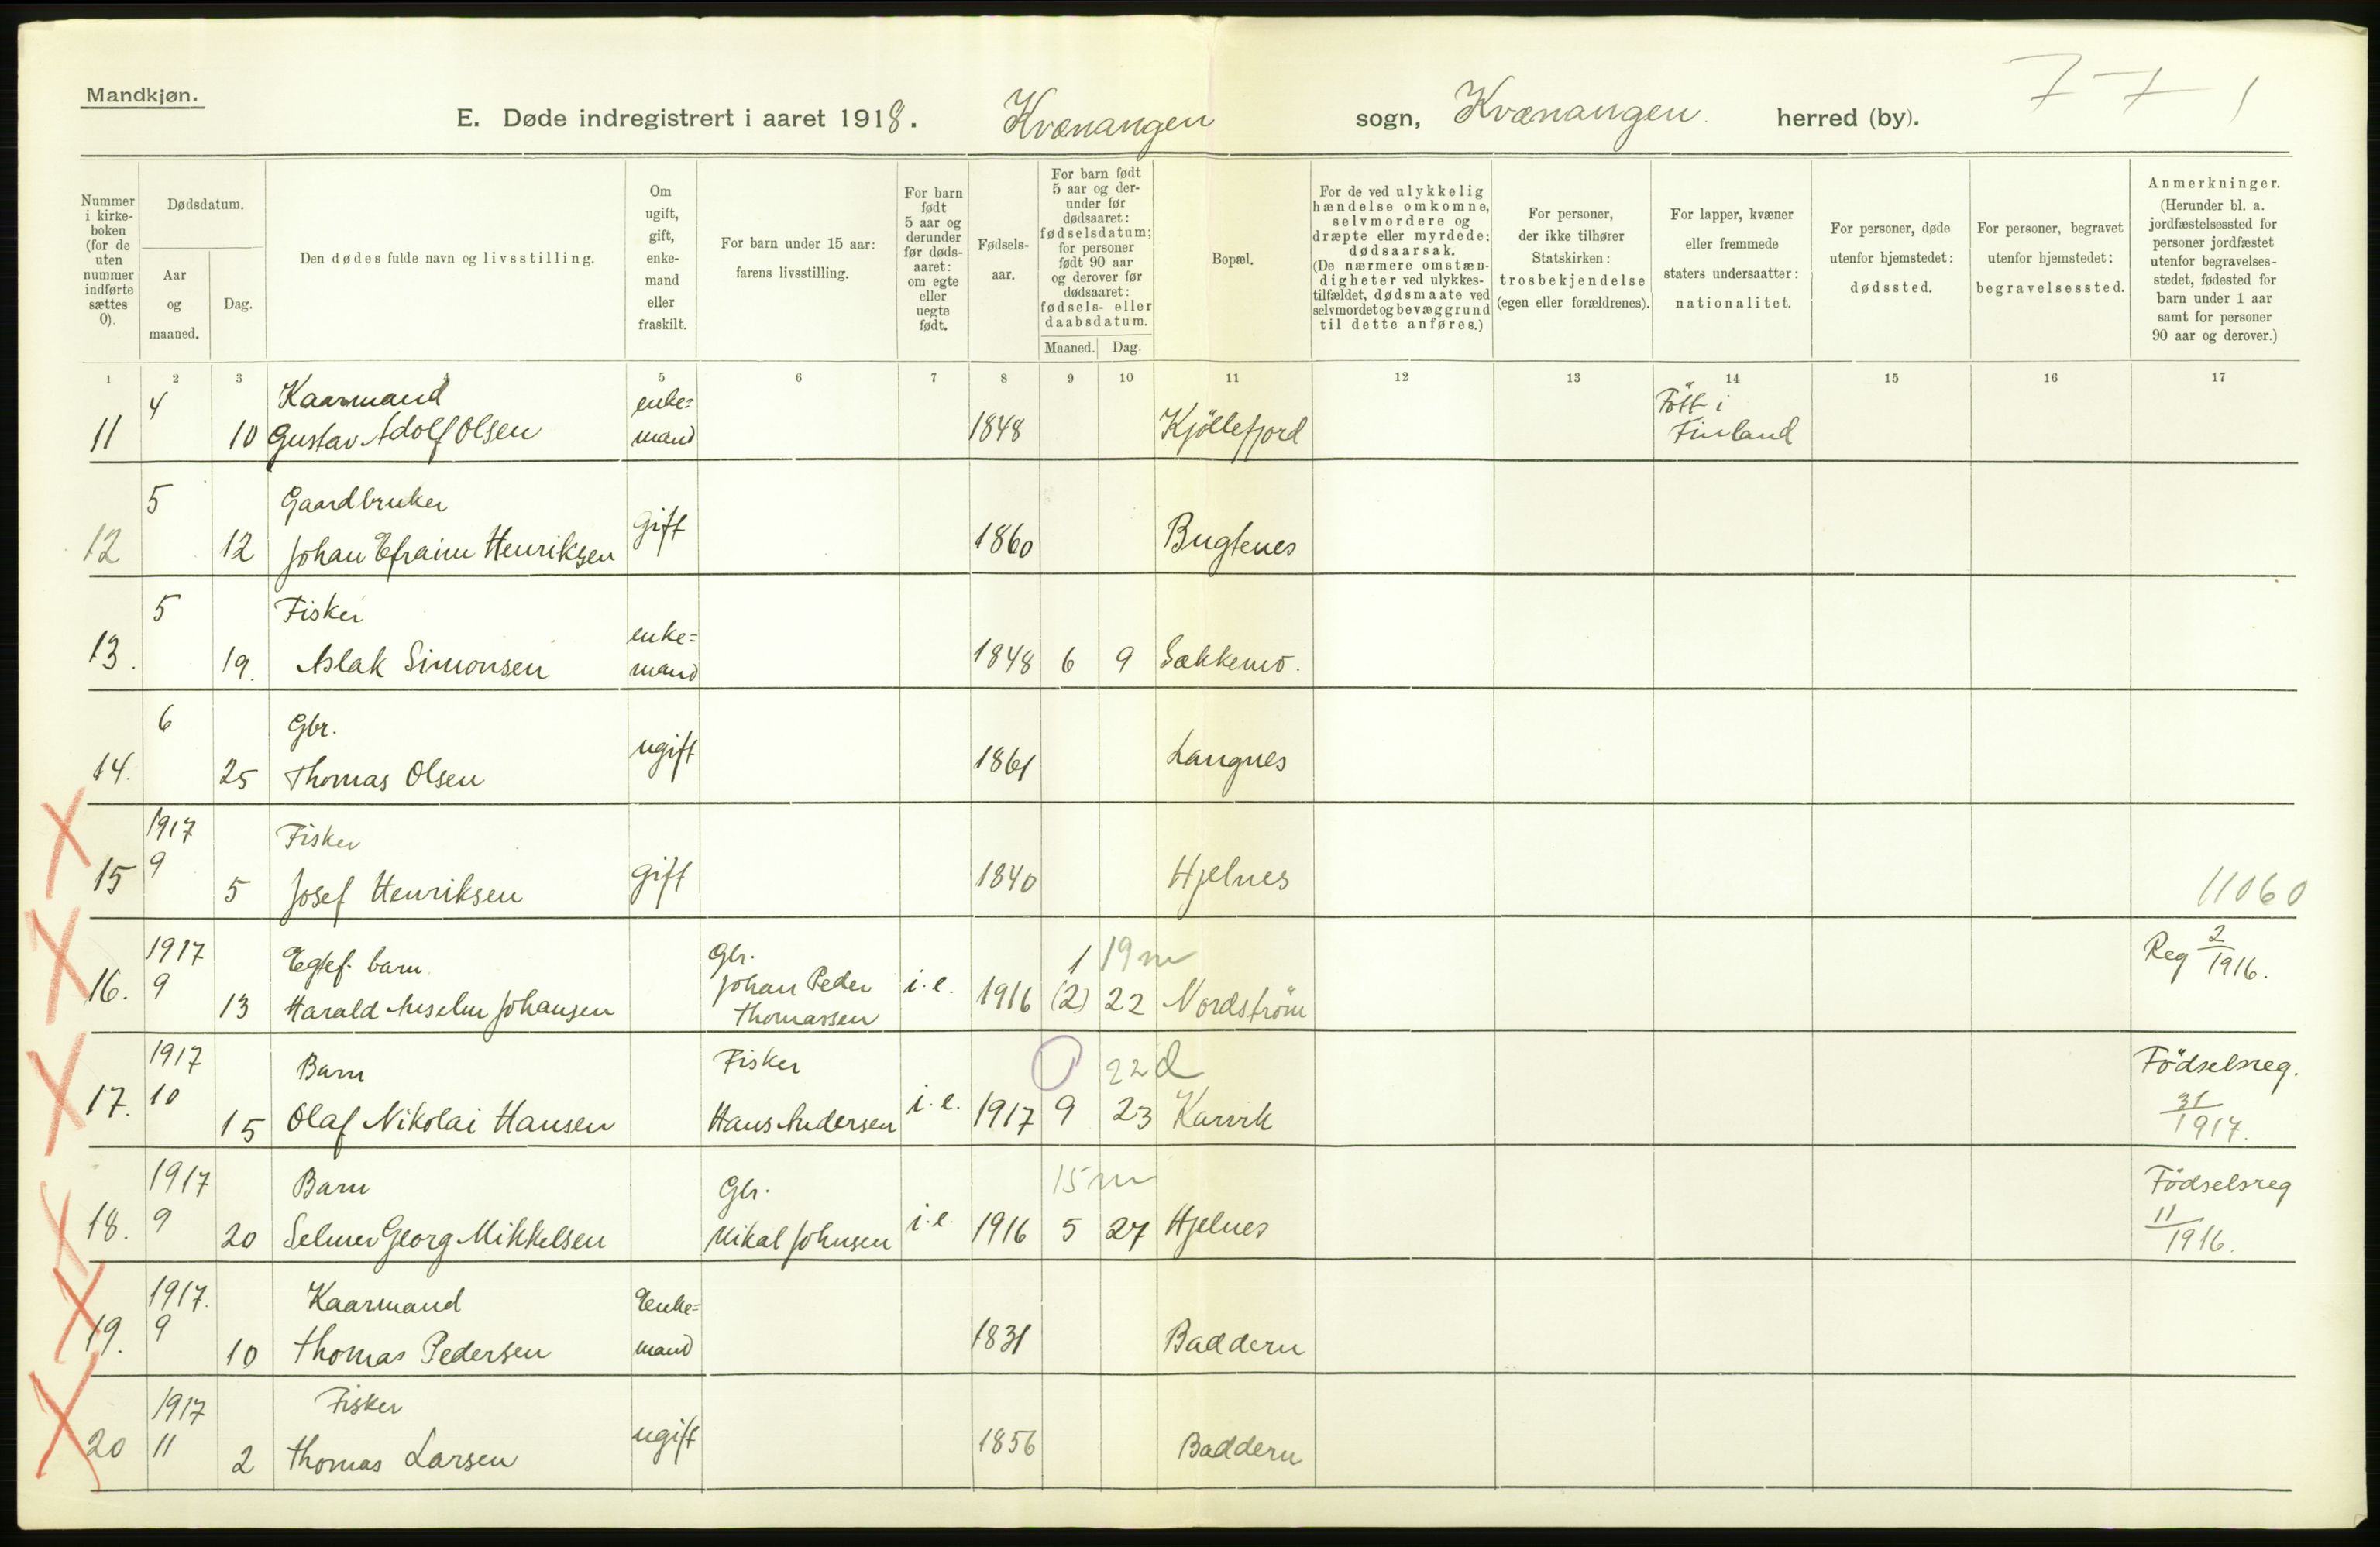 Mandkjøn.
E. Døde indregistrert i aaret 1918. Kvænangen sogn, Kvænangen herred (by).
7 7 1
Nummer i kirke-boken (for de uten nummer indførte sættes 0).
Dødsdatum.
Aar og maaned.
Dag.
Den dødes fulde navn og livsstilling.
Om ugift, gift, enke-mand eller fraskilt.
For barn under 15 aar: farens livsstilling.
For barn født 5 aar og derunder før døds-aaret: om egte eller uegte født.
Fødsels-aar.
For barn født 5 aar og der-under før dødsaaret: fødselsdatum; for personer født 90 aar og derover før dødsaaret: fødsels- eller daabsdatum.
Maaned. Dag.
Bopæl.
For de ved ulykkelig hændelse omkomne, selvmordere og dræpte eller myrdede: dødsaarsak. (De nærmere omstæn-digheter ved ulykkes-tilfældet, dødsmaate ved selvmordet og bevæggrund til dette anføres.)
For personer, der ikke tilhører Statskirken: trosbekjendelse (egen eller forældrenes).
For lapper, kvæner eller fremmede staters undersaatter: nationalitet.
For personer, døde utenfor hjemstedet: dødssted.
For personer, begravet utenfor hjemstedet: begravelsessted.
Anmerkninger. (Herunder bl. a. jordfæstelsessted for personer jordfæstet utenfor begravelses-stedet, fødested for barn under 1 aar samt for personer 90 aar og derover.)
1 2 3 4 5 6 7 8 9 10 11 12 13 14 15 16 17
4 Kaarmand enke= Fött i
11 10 Gustav Adolf Olsen mand 1848 Kjöllefjord Finland
5 Gaardbruker
12 12 Johan Efraim Henriksen gift 1860 Bugtenes
5 Fisker enke=
13. 19. Aslak Simonsen mand 1848 6 9 Sækkemo.
6 Gbr.
14. 25 Thomas Olsen ugift 1861 Langnes
1917 Fisker
15 9 5 Josef Henriksen gift 1840 Hjelnes 11060
1917 Egtef. barn Gbr. 1 19 m Reg 2/1916.
16. 9 13 Harald Anselm Johansen Johan Peder Thomassen i.e. 1916 (2) 22 Nordström
1917 Barn Fisker 22 d Födselsreg.
17. 10 15 Olaf Nikolai Hansen Hans Andersen i.e. 1917 9 23 Karvik 31/1917.
1917 Barn Gbr. 15 m Födselsreg
18. 9 20 Selmer Georg Mikkelsen Mikal Johnsen i.e. 1916 5 27 Hjelnes 11/1916.
1917. Kaarmand Enke=
19. 9 10 Thomas Pedersen mand 1831 Baddern
1917 Fisker
20 11 2 Thomas Larsen ugift 1856 Baddern